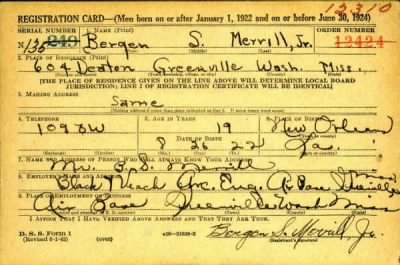 12310
REGISTRATION CARD—(Men born on or after January 1, 1922 and on or before June 30, 1924)
SERIAL NUMBER 1. NAME (Print) ORDER NUMBER
Bergen S. Merrill, Jr. 12424
(First) (Middle) (Last)
2. PLACE OF RESIDENCE (Print)
604 Deaton Greenville Wash. Miss.
[THE PLACE OF RESIDENCE GIVEN ON THE LINE ABOVE WILL DETERMINE LOCAL BOARD
JURISDICTION; LINE 2 OF REGISTRATION CERTIFICATE WILL BE IDENTICAL]
3. MAILING ADDRESS
Same
4. TELEPHONE 5. AGE IN YEARS 6. PLACE OF BIRTH
1093W 19 New Orleans
DATE OF BIRTH
8 26 22 La.
7. NAME AND ADDRESS OF PERSON WHO WILL ALWAYS KNOW YOUR ADDRESS
Mr. B. S. Merrill
8. EMPLOYER'S NAME AND ADDRESS
Black Arc. Eng. A. Base Greenville
9. PLACE OF EMPLOYMENT OR BUSINESS
Air Base Greenville Wash Miss
I AFFIRM THAT I HAVE VERIFIED ABOVE ANSWERS AND THAT THEY ARE TRUE.
D. S. S. FORM 1
(Revised 6-1-42) Bergen S. Merrill, Jr.
(Registrant's signature)